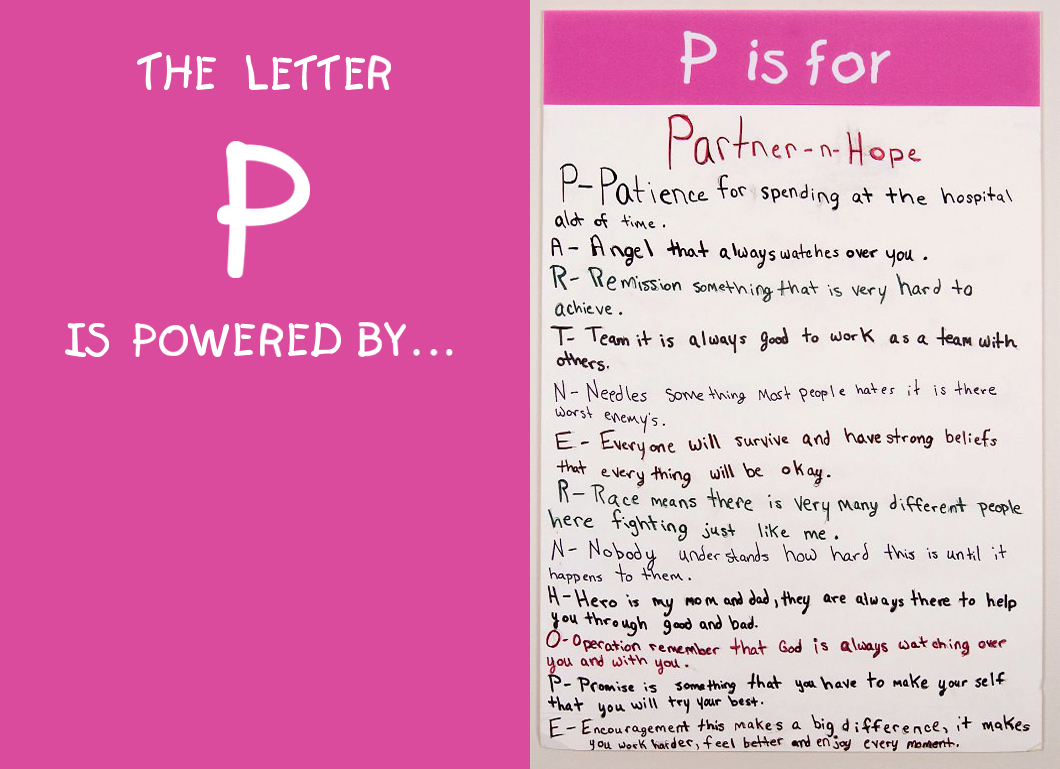 THE LETTER
P
IS POWERED BY...
P is for
Partner-n-Hope
P-Patience for spending at the hospital
alot of time.
A- Angel that always watches over you.
R- Remission something that is very hard to
achieve.
T- Team it is always good to work as a team with
others.
N- Needles something most people hates it is there
worst enemy's.
E- Everyone will survive and have strong beliefs
that everything will be okay.
R- Race means there is very many different people
here fighting just like me.
N- Nobody understands how hard this is until it
happens to them.
H-Hero is my mom and dad, they are always there to help
you through good and bad.
O-Operation remember that God is always watching over
you and with you.
P- Promise is something that you have to make your self
that you will try your best.
E- Encouragement this makes a big difference, it makes
you work harder, feel better and enjoy every moment.